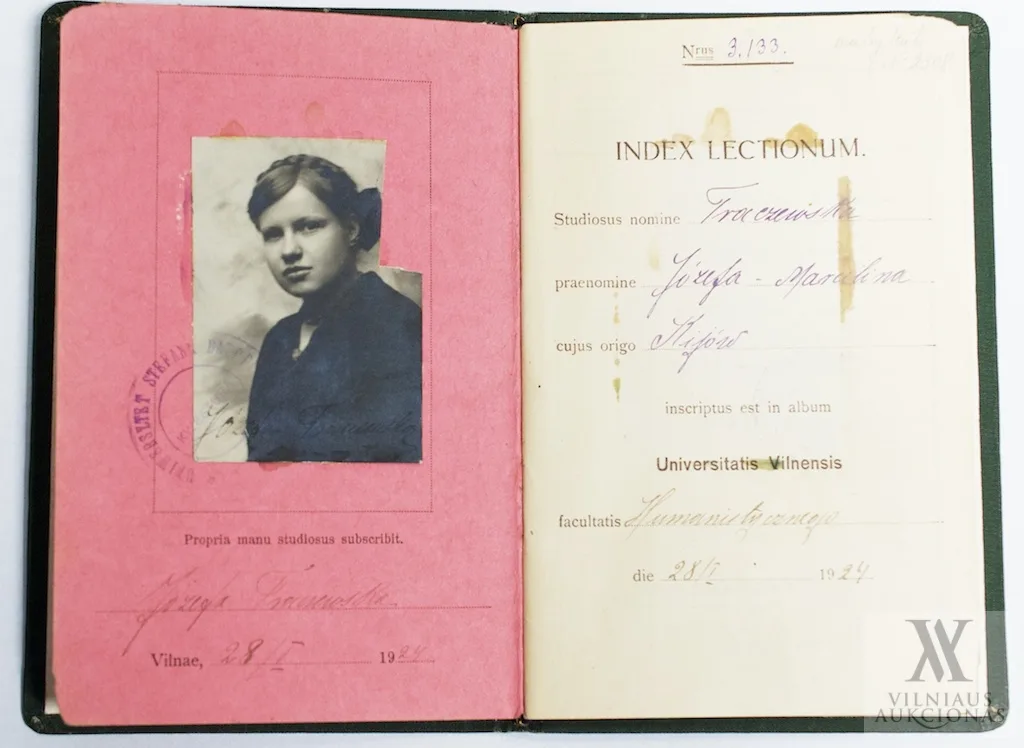 Józefa Traczewska
UNIWERSYTET STEFANA
Propria manu studiosus subscribit.
Józefa Traczewska
Vilnae, 28/I 1924
Nrus 3.133.
INDEX LECTIONUM.
Studiosus nomine Traczewska
praenomine Józefa - Marcelina
cujus origo Kijów
inscriptus est in album
Universitatis Vilnensis
facultatis Humanistycznego
die 28/I 1924
VILNIAUS
AUKCIONAS